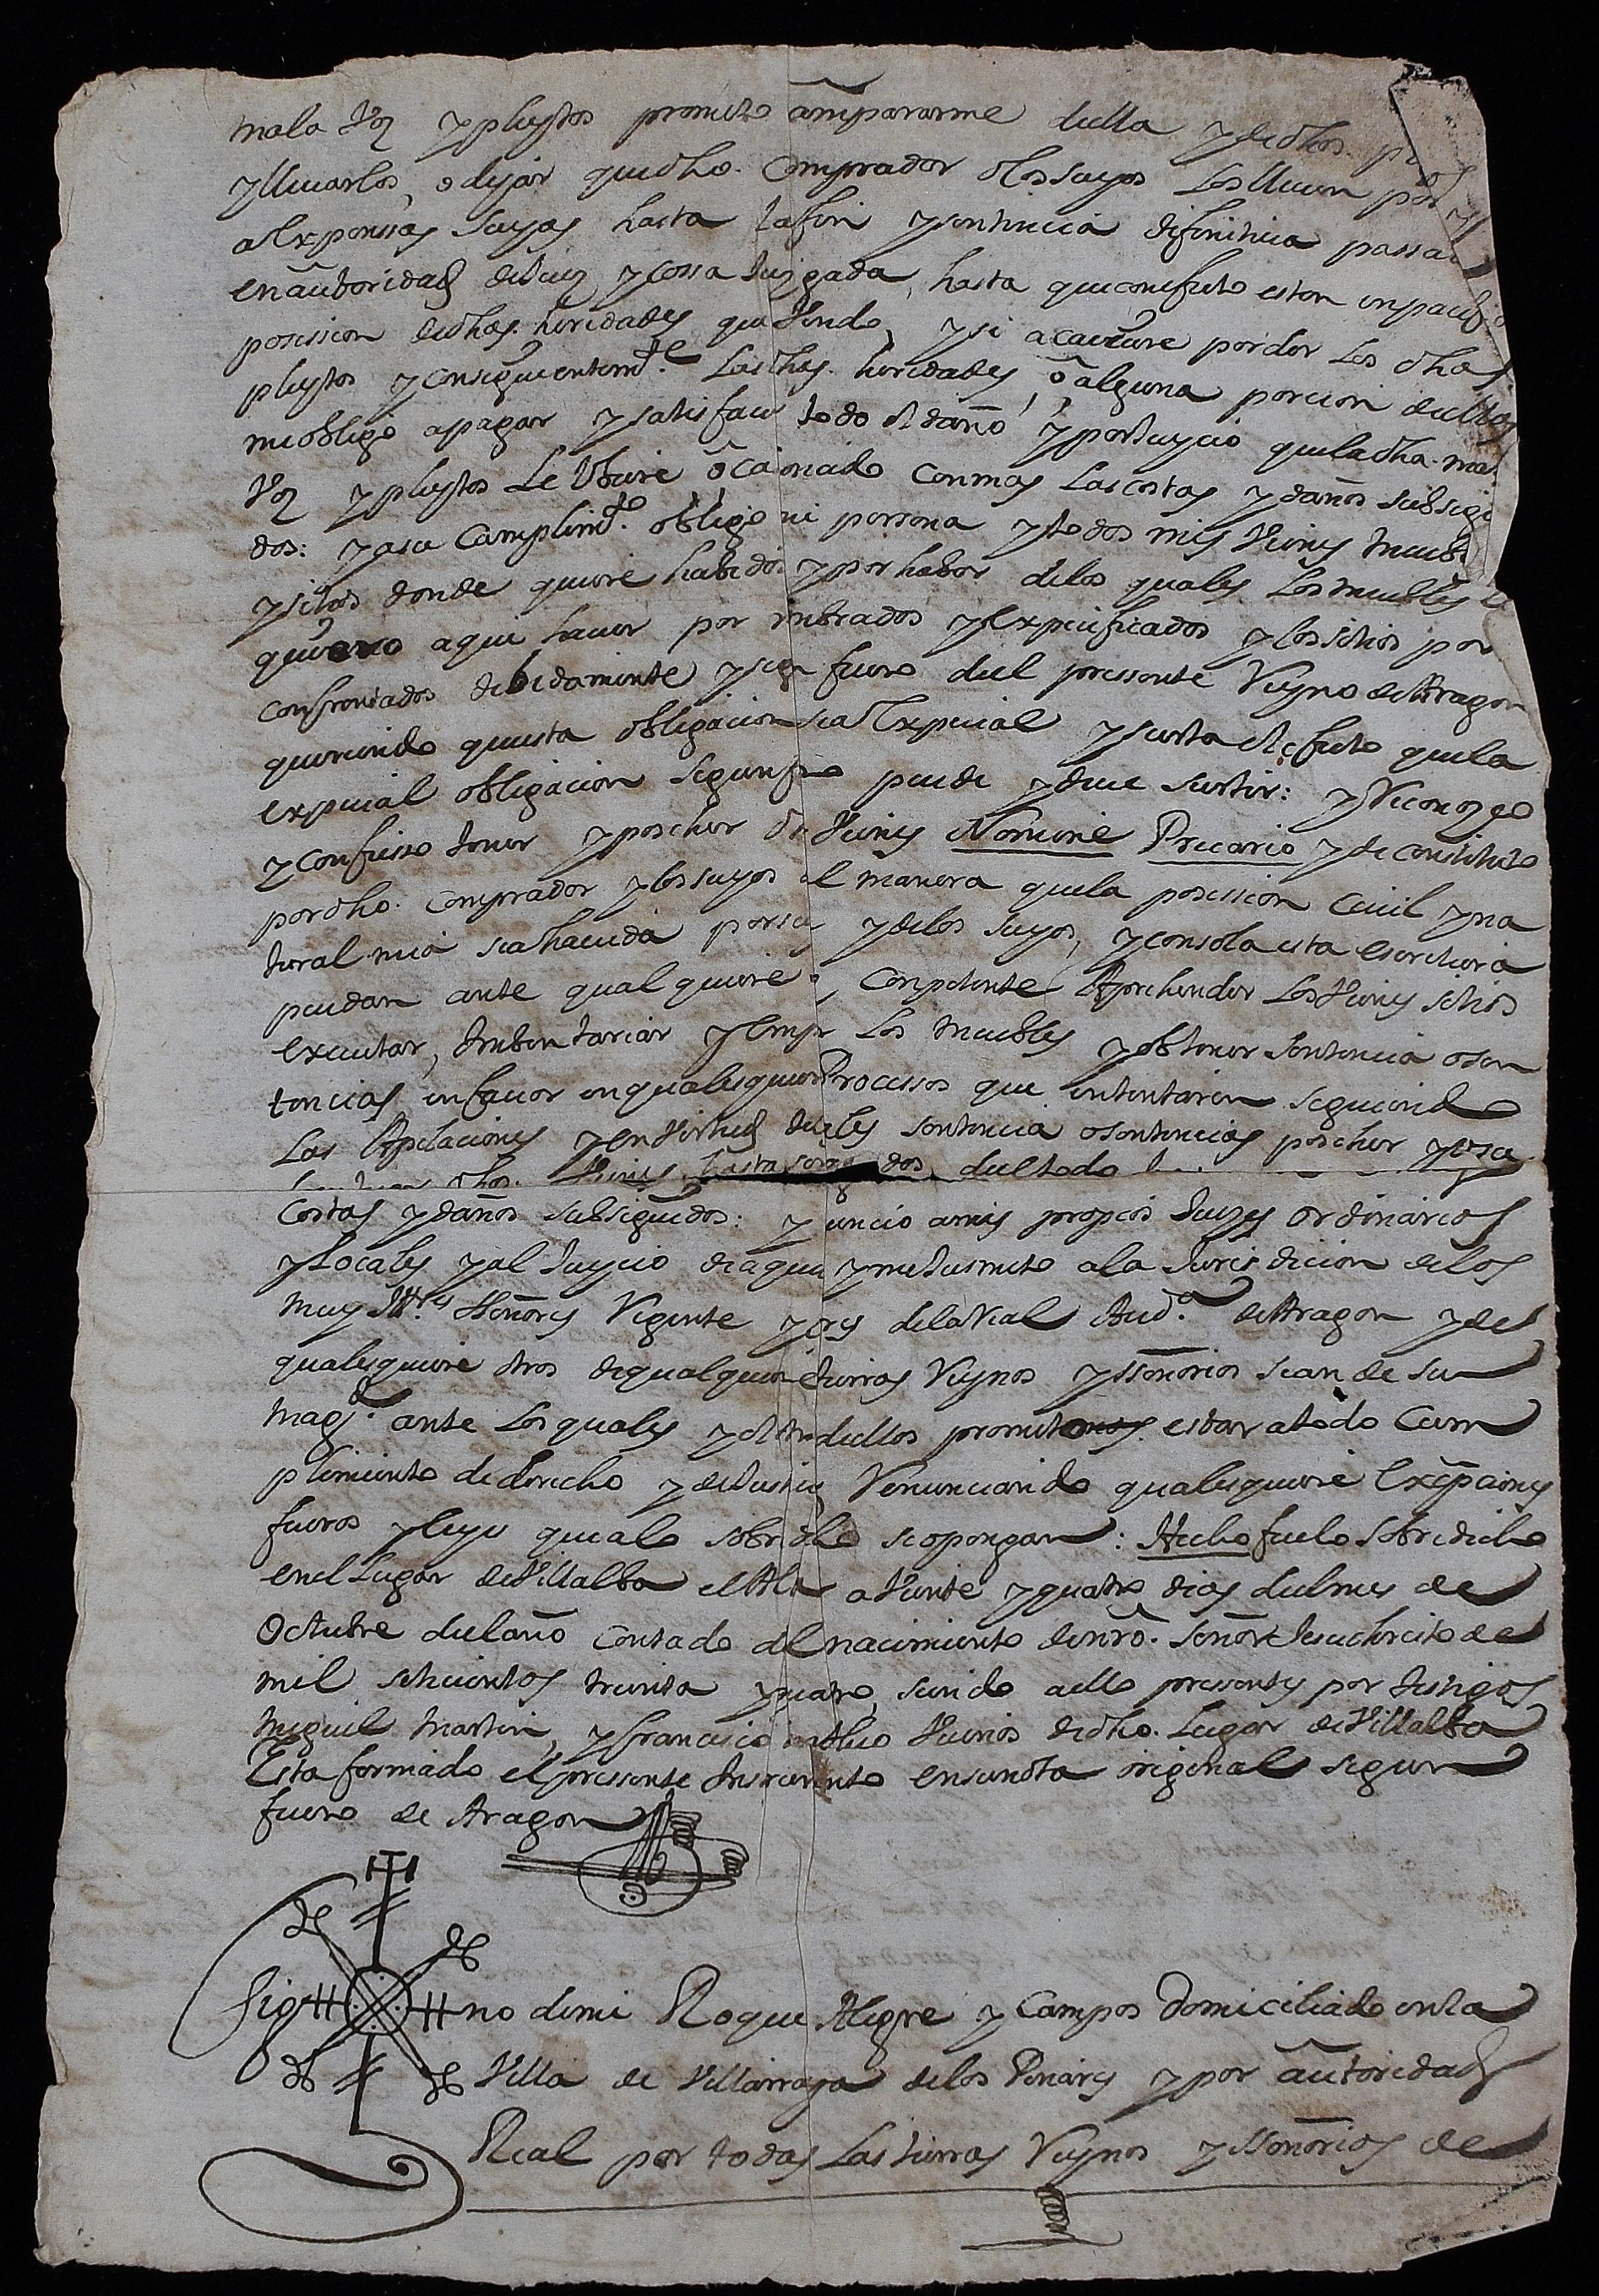 mala voz y pleytos prometo ãmpararme della y de dhos.
y lleuarlos, o dejar que dho. Comprador o los suyos los lleuen por
a expenssas suyas hasta la fin y sentencia difinitiua passada
en aũtoridad de Juez y cossa Juzgada, hasta que con efecto esten en pacifica
posession de dhas. heredades que vendo, y si acaeciere perder los dhos.
pleytos y consiguientemte. las dhas. heredades, õ alguna porcion dellas
me obligo a pagar y satisfacer todo el daño, y perjuycio que la dha. mala
voz y pleytos le vbiere õcasionado con mas las costas y daños subsegui
dos: y a su Cumplimto. obligo mi persona y todos mis vienes muebles
y sitios donde quiere habidos y por haber de los quales los muebles
quiero aqui hauer por nombrados y expecificados y los sitios por
confrontados debidamente y segun fuero del pressente Reyno de Aragon
queriendo que esta obligacion sea expecial y surta el efecto que la
expecial obligacion segun fuero puede y deue surtir: y Reconozco
y confiesso tener y poseher dhos. vienes Nomine Precario y de constituto
por dho. Comprador y los suyos de tal manera que la posession Ciuil y na
tural mia sea hauida por suya y de los suyos, y con sola esta escritura
puedan ante qualquiere Juez Competente Aprehender los vienes sitios
executar, Imbentariar y Emparar los muebles y obtener sentencia o sen
tencias en fauor en qualesquiere Processos que intentaren siguiendo
las Apelaciones y en virtud de tales sentencia o sentencias posseher y vsu
dhos. vienes hasta ser pagados del todo
Costas y daños subseguidos: y renuncio a mis propios Juezes Ordinarios
y Locales y al Juycio de aquellos y me Jusmeto a la Jurisdicion de los
muy Illtres. Señores Regente y Oydores de la Real Auda. de Aragon y de
qualesquiere otros de qualquiere tierras Reynos y Señorios sean de su
Magd. ante los quales y el otro dellos prometo estar a todo Cum
plimiento de derecho y de Justicia Renunciando qualesquiere Excepciones
fueros y leyes que a lo sobre dho. se opongan: Hecho fue lo sobredicho
en el Lugar de Villalba el Alta a veinte y quatro dias del mes de
Octubre del año contado del nacimiento de nro. Señor Jesuchristo de
mil setecientos treinta y quatro, siendo a ello pressentes por testigos
Miguel Martin, y francisco vecinos de dho. Lugar de Villalba
Esta firmado el pressente Instrumento en su nota original segun
fuero de Aragon
Sig no de mi Roque Alegre y Campos Domiciliado en la
Villa de Villarroya de los Pinares y por aũtoridad
Real por todas las tierras Reynos y Señorios de